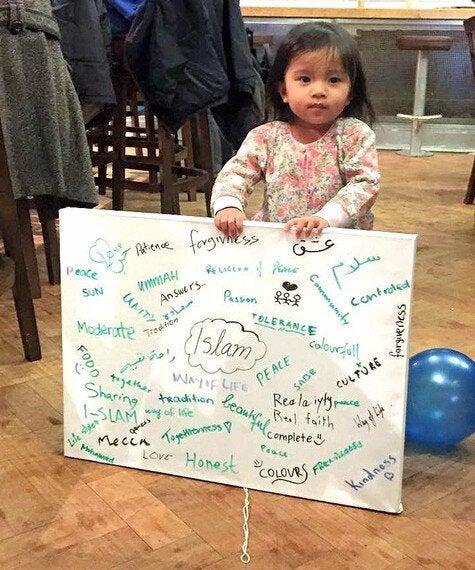 Love
Patience
forgiveness
عشق
سلام
Peace
SUN
UMMAH
RELIGION of PEACE
Answers..
UNITY
سعادة
Tradition
Passion
Community
Controled
forgiveness
Moderate
TOLERANCE
Islam
colourfull
FOOD
together
WAY OF LIFE
PEACE
SABR
CULTURE
Sharing
tradition
beautiful
Realaiyty
peace
I-SLAM
way of life
Real faith
Way of Life
Mecca
Togetherness
complete
Mohammed
LOVE
Honest
Peace
COLOURS
Kindness